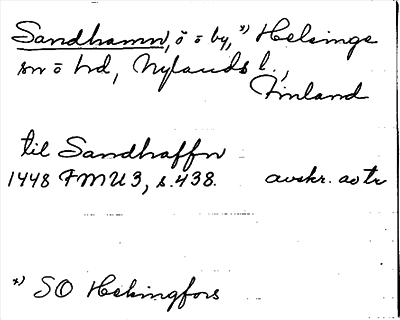 Sandhamn, ö o by, *) Helsinge
sn o hd, Nylands l.,
Finland
til Sandhaffn
1448 FMU 3, s. 438. avskr. av tr
*) SO Helsingfors